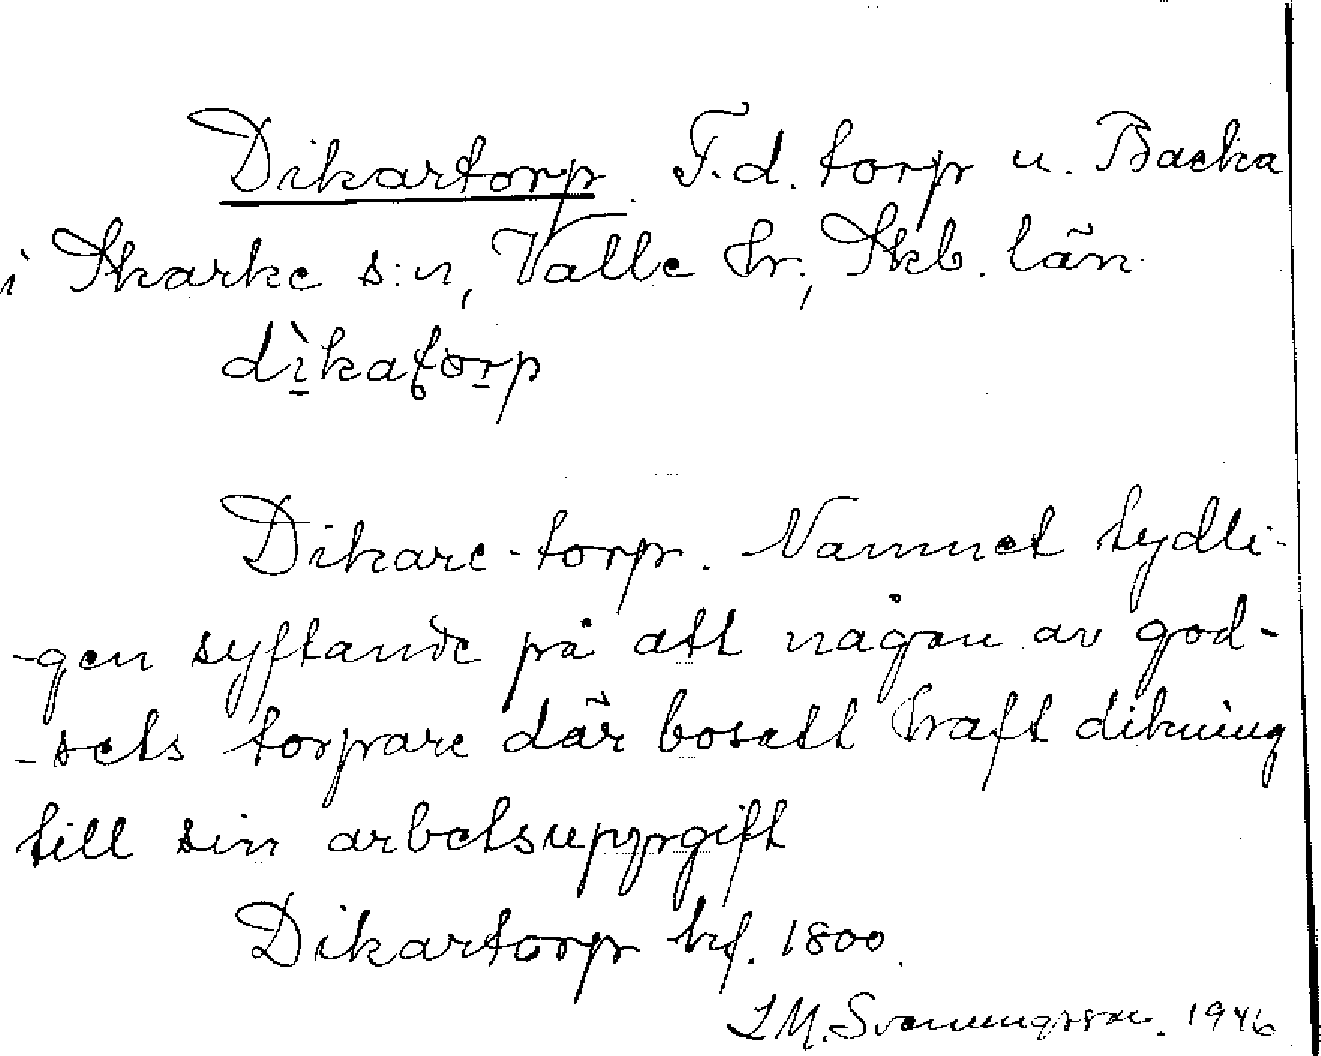 Dikartorp. F.d. torp u. Backa
i Skarke s:n, Valle hr, Skb. län.
dìkatorp
Dikare-torp. Namnet tydli-
-gen syftande på att någon av god-
-sets torpare där bosatt haft dikning
till sin arbetsuppgift
Dikartorp hf. 1800.
L M. Svenungsson. 1946